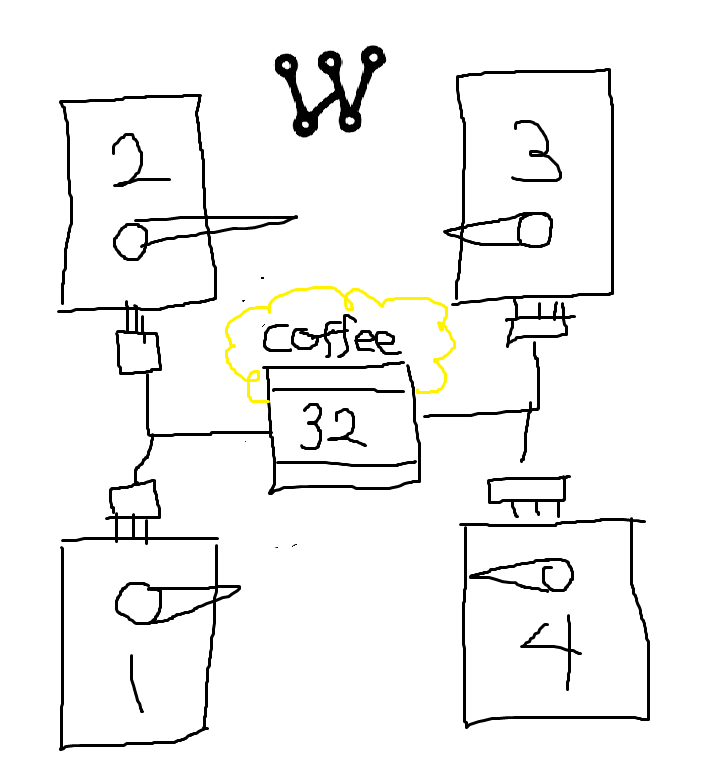 W
2
3
coffee
32
1
4